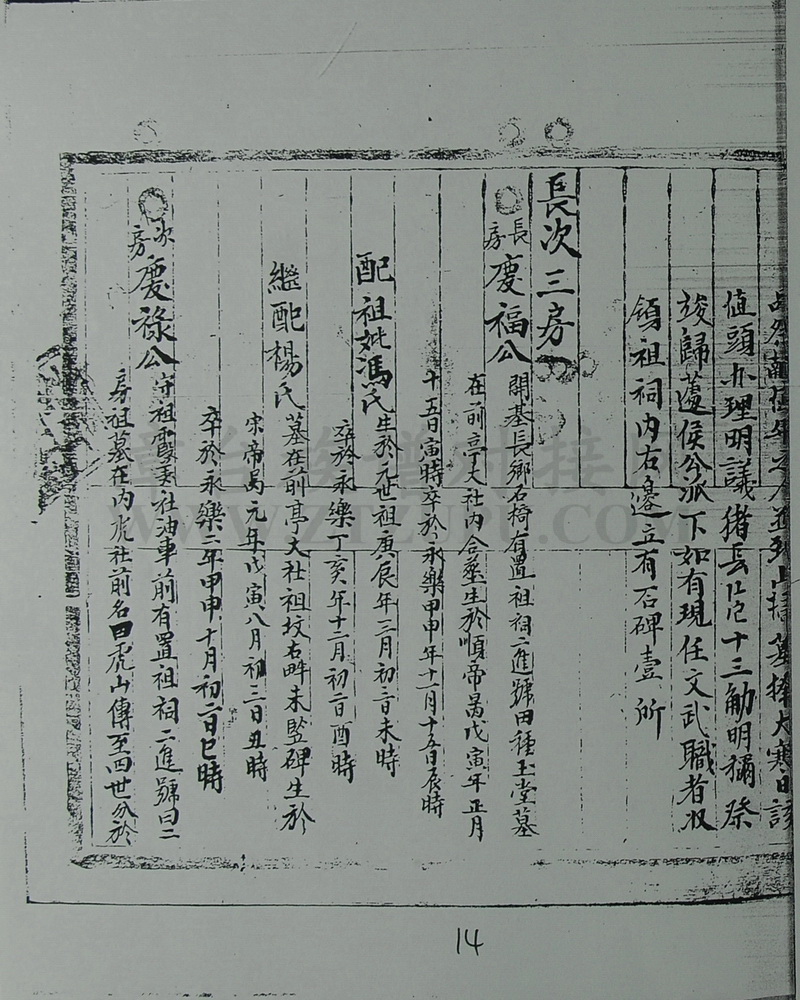 值頭亦理明議猪長 十三觔明猵祭
竣歸薳侯公派下如有現任文武職者収
領祖祠內右邊立有石碑壹所
長次三房
長房慶福公開基長鄉石椅有置祖祠二進號田種玉堂墓
在前亭大社內合塟生於順帝昺戊寅年正月
十五日寅時卒於永樂甲申年十一月十五日辰時
配祖妣馮氏生於元世祖庚辰年三月初二日未時
卒於永樂丁亥年十二月初二日酉時
繼配楊氏墓在前亭大社祖坟右畔未監碑生於
宋帝昺元年戊寅八月初三日丑時
卒於永樂二年甲申十月初二日巳時
次房慶祿公守祖霞委社油車前有置祖祠二進號曰二
房祖墓在內虎社前名曰虎山傳至四世分於
14